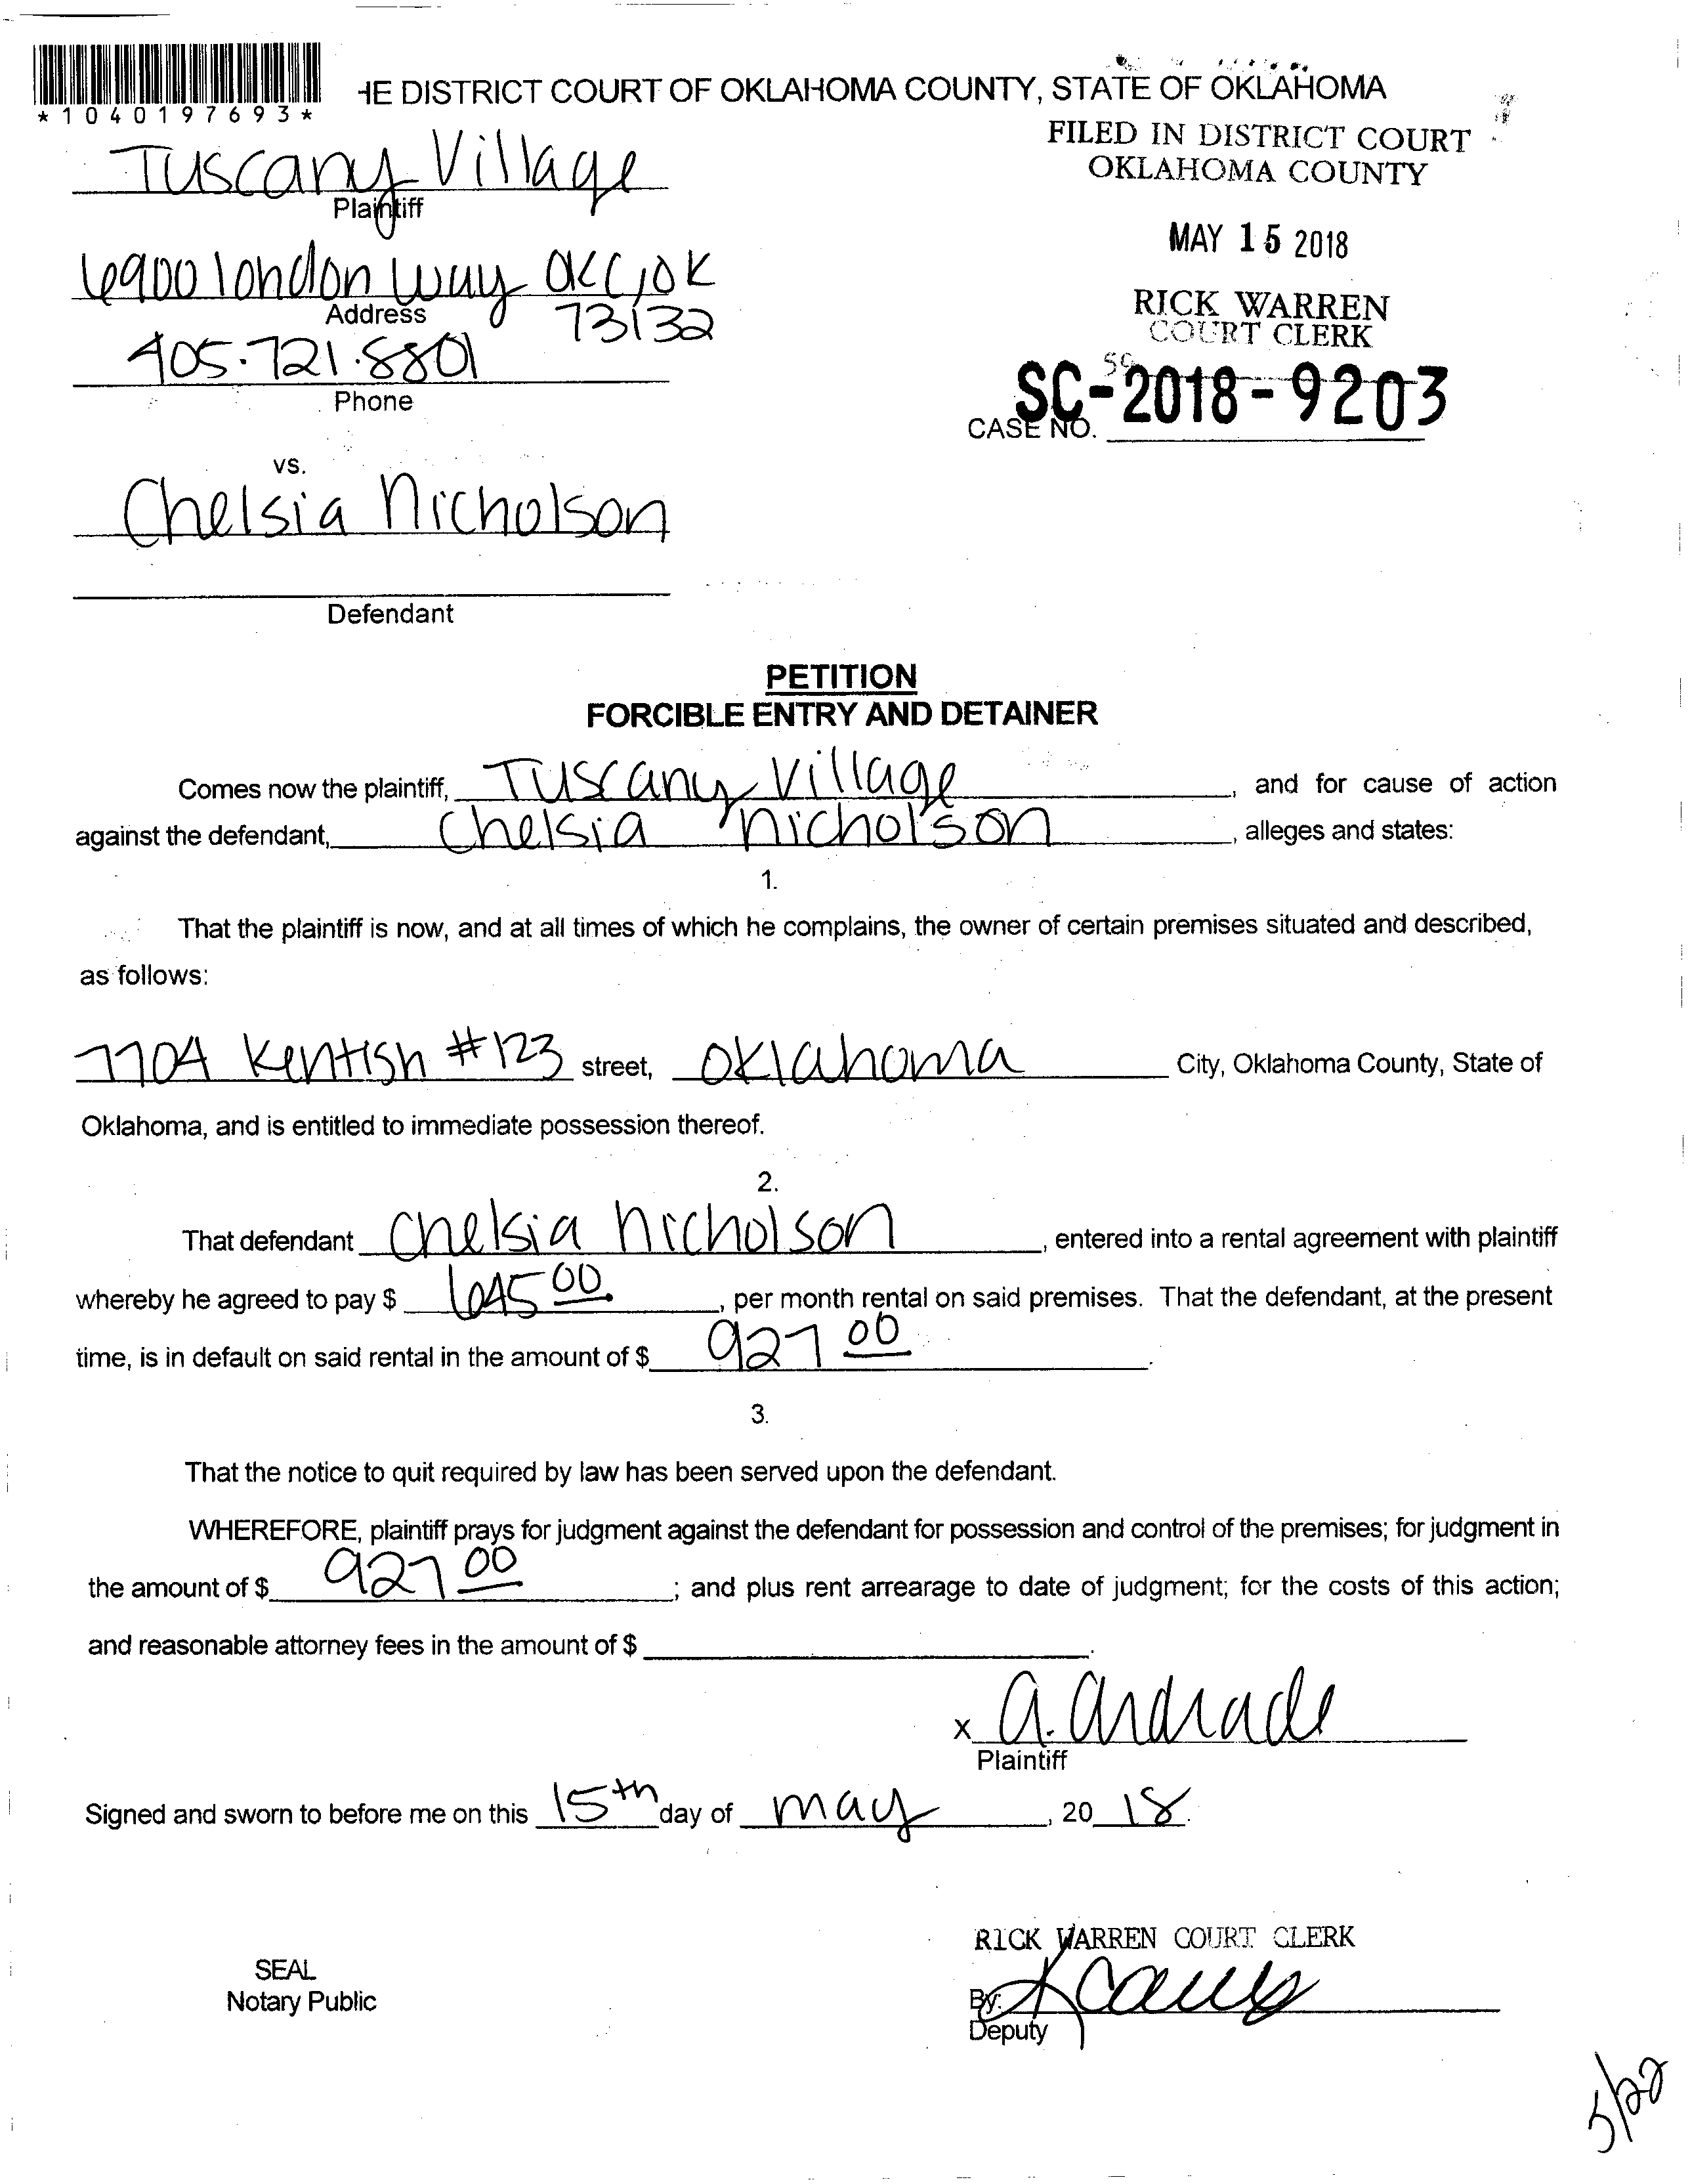 *1040197693*
HE DISTRICT COURT OF OKLAHOMA COUNTY, STATE OF OKLAHOMA
FILED IN DISTRICT COURT
OKLAHOMA COUNTY
Tuscany Village
Plaintiff
MAY 15 2018
6900 london way OKC, OK
Address
73132
RICK WARREN
COURT CLERK
405.721.8801
Phone
SC-2018-9203
CASE NO.
vs.
Chelsia Nicholson
Defendant
PETITION
FORCIBLE ENTRY AND DETAINER
Comes now the plaintiff, Tuscany Village, and for cause of action
against the defendant, Chelsia Nicholson, alleges and states:
1.
That the plaintiff is now, and at all times of which he complains, the owner of certain premises situated and described,
as follows:
7704 Kentish #123 street, Oklahoma City, Oklahoma County, State of
Oklahoma, and is entitled to immediate possession thereof.
2.
That defendant Chelsia Nicholson, entered into a rental agreement with plaintiff
whereby he agreed to pay $ 645 00, per month rental on said premises. That the defendant, at the present
time, is in default on said rental in the amount of $ 927 00.
3.
That the notice to quit required by law has been served upon the defendant.
WHEREFORE, plaintiff prays for judgment against the defendant for possession and control of the premises; for judgment in
the amount of $ 927 00; and plus rent arrearage to date of judgment; for the costs of this action;
and reasonable attorney fees in the amount of $ .
x a. andrade
Plaintiff
Signed and sworn to before me on this 15th day of may, 20 18.
RICK WARREN COURT CLERK
SEAL
Notary Public
By:
Deputy
5/22